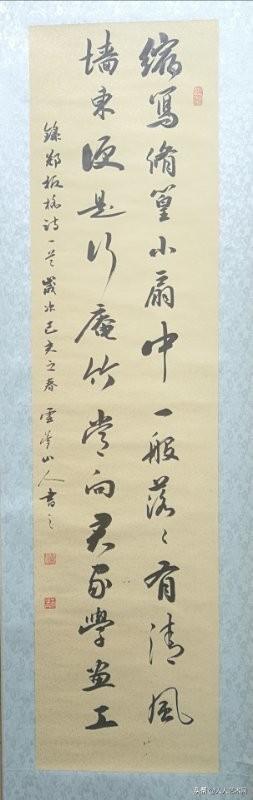 縮寫脩篁小扇中一般落〻有清風
墻東便是行庵竹常向君家學畫工
錄鄭板橋詩一首歲次己亥之春雲山人書之
头条@人人艺术网